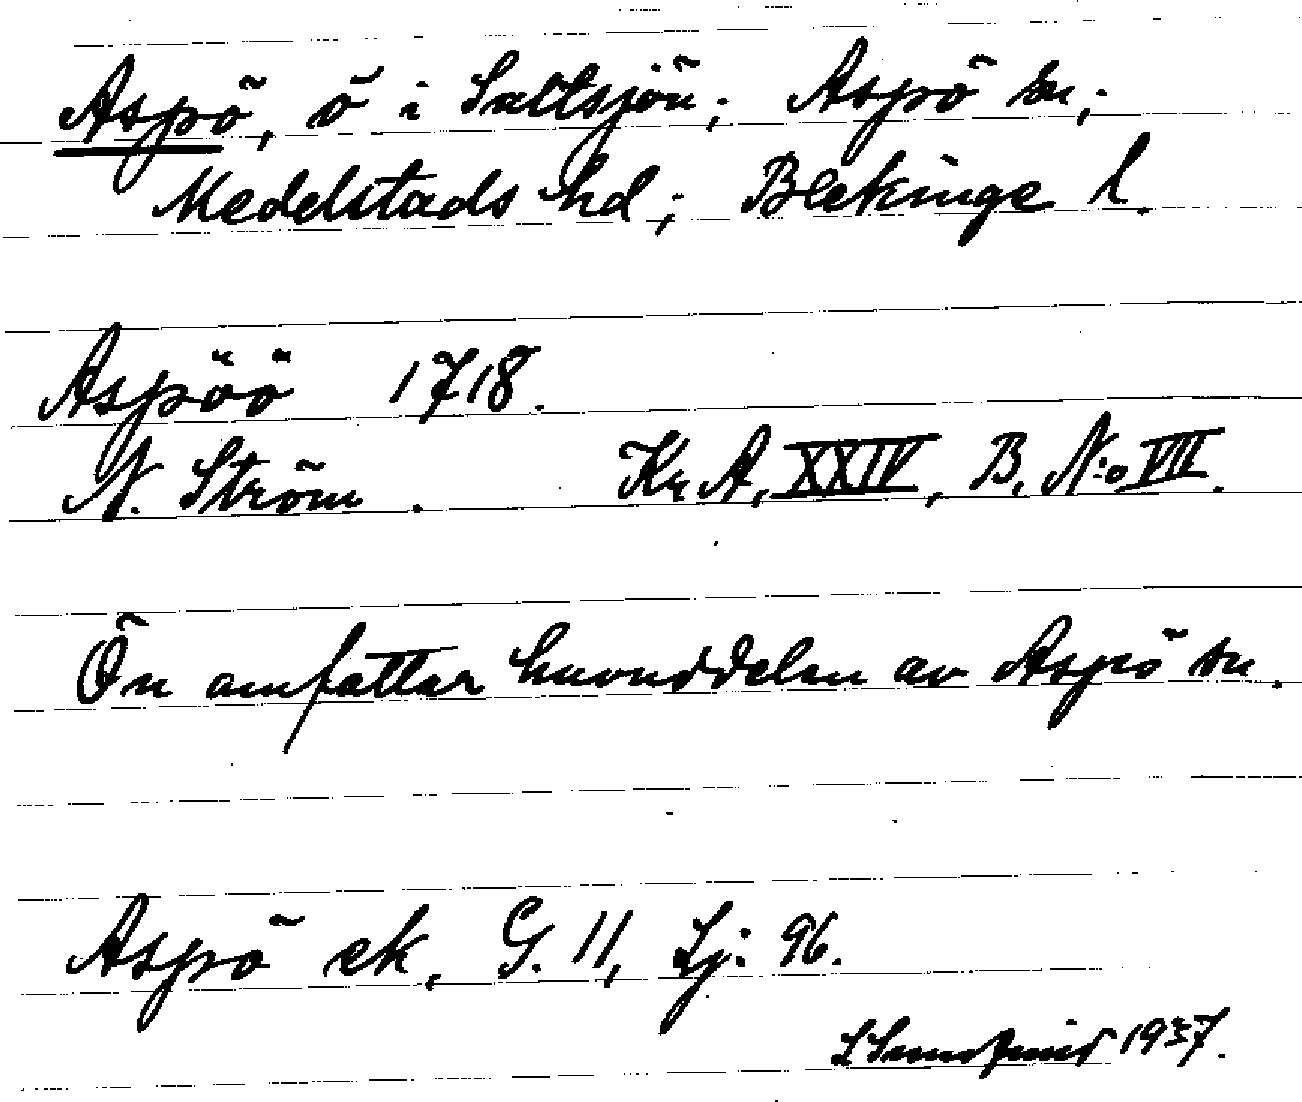 Aspö, ö i Saltsjön; Aspö sn;
Medelstads hd; Blekinge l.
Aspöö 1718.
N. Ström. Kr A, XXIV, B, N:o VII.
Ön omfattar huvuddelen av Aspö sn.
Aspö ek, G. 11, Lj: 96.
1937.